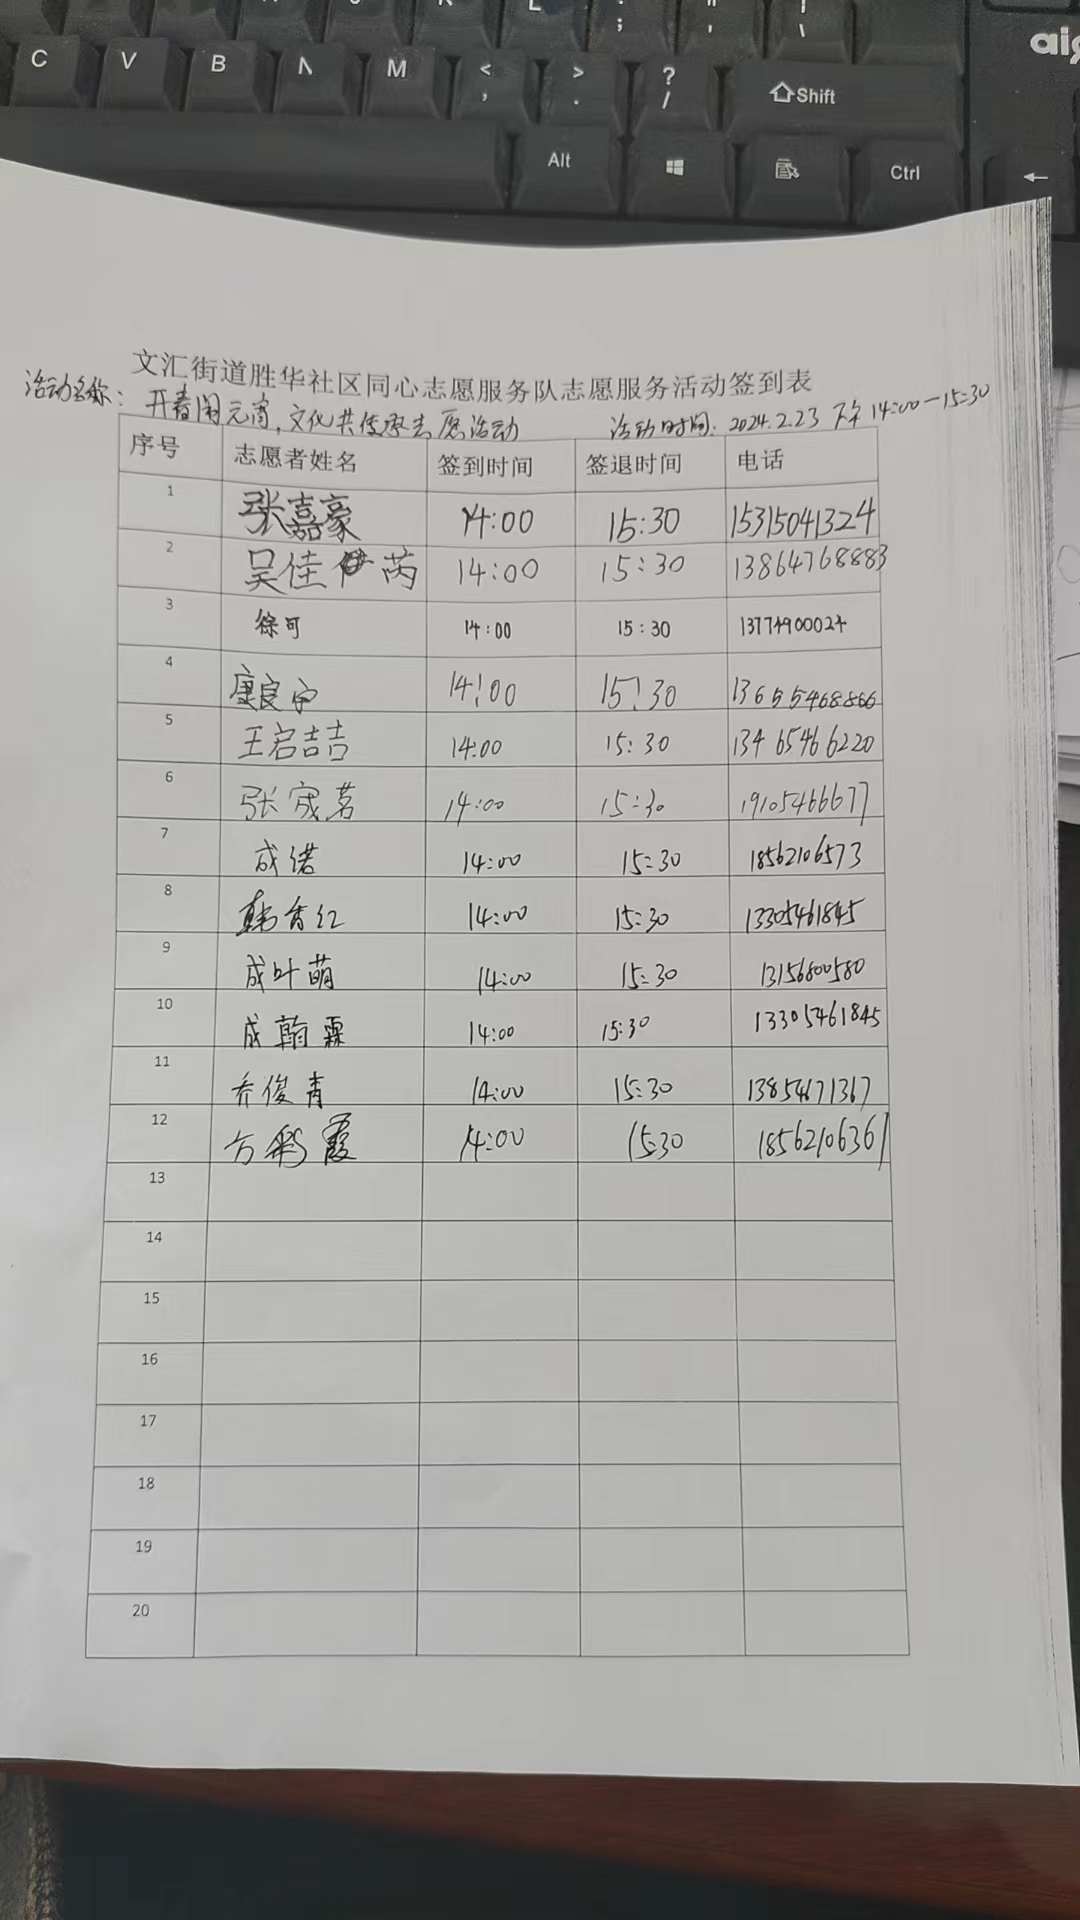 C V B N M < , > . ? / ⇧Shift
Alt Ctrl ←
文汇街道胜华社区同心志愿服务队志愿服务活动签到表
活动名称：开春闹元宵,文化共传承志愿活动 活动时间：2024.2.23 下午14:00—15:30
序号 志愿者姓名 签到时间 签退时间 电话
1 张嘉豪 14:00 15:30 15315041324
2 吴佳芮 14:00 15:30 13864768883
3 徐可 14:00 15:30 13774900024
4 康良宇 14:00 15:30 13655468866
5 王启喆 14:00 15:30 13465466220
6 张宬茗 14:00 15:30 19105466677
7 成诺 14:00 15:30 18562106573
8 韩香红 14:00 15:30 13305461845
9 成叶萌 14:00 15:30 13156800580
10 成翰霖 14:00 15:30 13305461845
11 乔俊青 14:00 15:30 13854671367
12 方彩霞 14:00 15:30 18562106361
13
14
15
16
17
18
19
20